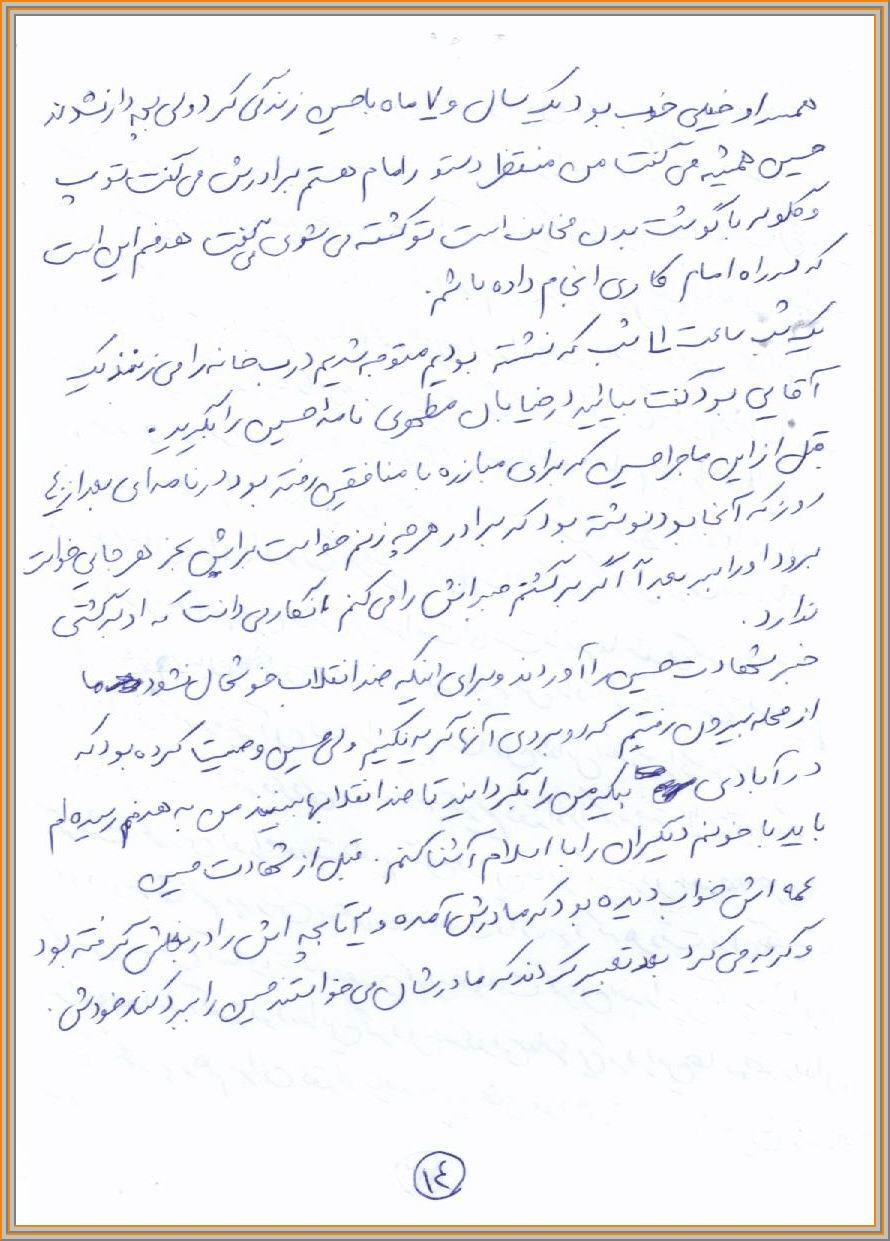 همسر او خیلی خوب بود یک سال و ۷ ماه با حسین زندگی کرد ولی بچه دار نشدند
حسین همیشه می گفت من منتظر دستور امام هستم برادرش می گفت توپ
و گلوله با گوشت بدن مخالف است تو کشته می شوی می گفت هدفم این است
که در راه امام کاری انجام داده باشم.
یک شب ساعت ۱۱ شب که نشسته بودیم متوجه شدیم درب خانه را می زنند یک
آقایی بود گفت بیائید در خیابان مطهری نامه حسین را بگیرید.
قبل از این ماجرا حسین که برای مبارزه با منافقین رفته بود در نامه ای بعد از
روز که آنجا بود نوشته بود که برادر هر چه زنم خواست برایش بخر هر جایی خواست
برود او را ببر بعداً اگر برگشتم جبرانش را می کنم انگار می دانست که او برگشتی
ندارد.
خبر شهادت حسین را آوردند و برای اینکه ضد انقلاب خوشحال نشود ما
از محله بیرون رفتیم که روبروی آنها گریه نکنیم ولی حسین وصیت کرده بود که
در آبادی پیکر من را بگردانید تا ضد انقلابها ببینند من به هدفم رسیده ام
باید با خونم دیگران را با اسلام آشنا کنم. قبل از شهادت حسین
عمه اش خواب دیده بود که مادرش آمده و بچه اش را در بغلش گرفته بود
و گریه می کرد بعد تعبیر کردند که مادرشان می خواستند حسین را ببرد کند خودش.
۱۴